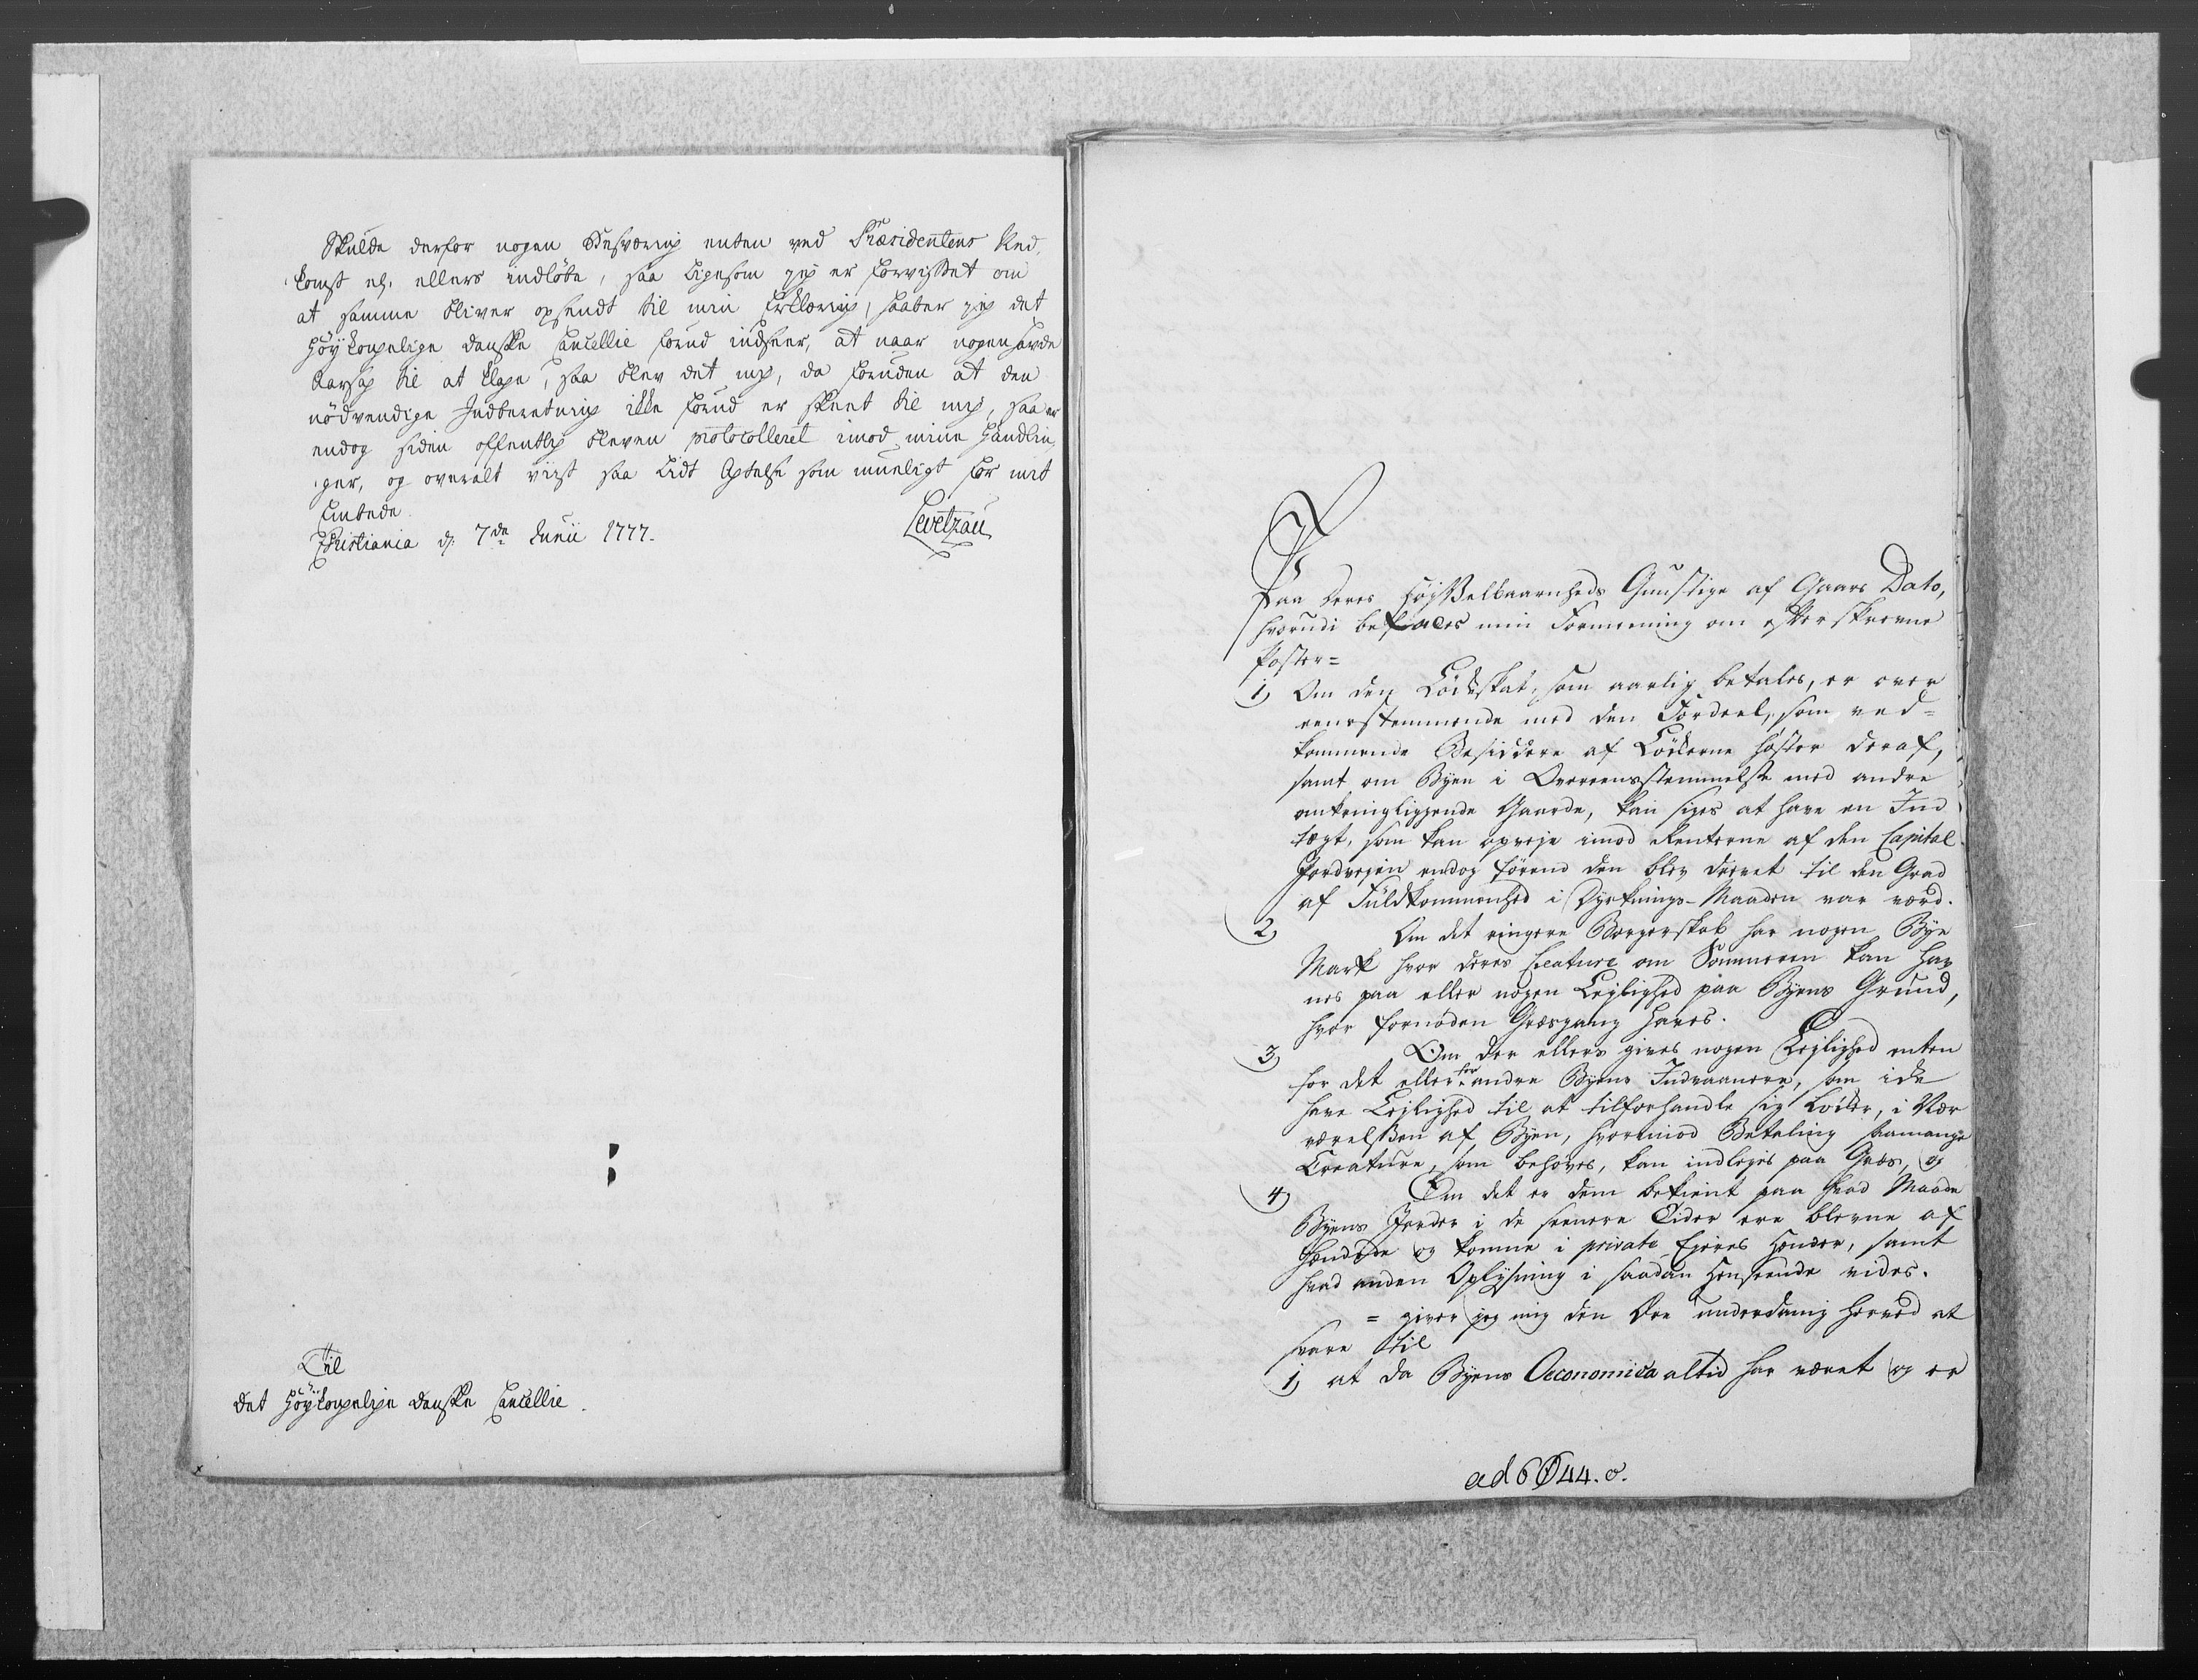 Skulde derfor nogen Besværing enten ved Præsidentens Ned,
komst ell. ellers indløbe, saa ligesom jeg er forvisset om
at samme bliver opsendt til min Erklæring, haaber jeg det
Høykongelige danske Cancellie forud indseer, at naar nogen havde
Aarsag til at klage, saa blev det mig, da foruden at den
nødvendige Indberetning ikke forud er skeet til mig, saa er
endog siden offentlig bleven protocolleret imod mine Handlin,
ger, og overalt viist saa lidt Agtelse som mueligt for mit
Embede.
Christiania d: 7de Junii 1777.
Levetzau
Til
det Høykongelige danske Cancellie.
Paa Deres HøjVelbaarenheds Gunstige af Gaars Dato,
hvorudi befales min Formeening om efterskrevne
Poster=
1) Om den Løkkeskat, som aarlig betales, er over
eensstemmende med den Fordeel, som ved=
kommende Besiddere af Løkkerne høster deraf,
samt om Byen i Overeensstemmelse med andre
omkringliggende Gaarde, kan siges at have en Ind
tægt, som kan opveje imod Renterne af den Capital
Jordvejen endog førend den blev drevet til den Grad
af Fuldkommenhed i Dyrknings-Maaden var værd.
2) Om det ringere Borgerskab har nogen Bye
Mark hvor deres Creature om Sommeren kan hav
nes paa eller nogen Lejlighed paa Byens Grund,
hvor fornøden Græsgang haves.
3) Om der ellers gives nogen Lejlighed enten
for det eller for andre Byens Indvaanere, som icke
have Lejlighed til at tilforhandle sig Løkker, i Nær
værelsen af Byen, hvorimod Betaling saamange
Creature, som behøves, kan indlejes paa Græs, og
4) Om det er dem bekient paa hvad Maade
Byens Jorder i de seenere Tider ere blevne af
hændede og komne i private Ejeres Hænder, samt
hvad anden Oplysning i saadan Henseende vides.
= giver jeg mig den Ære underdanig herved at
svare til
1) at da Byens Oeconomica altid har været og er
ad 6044. o.